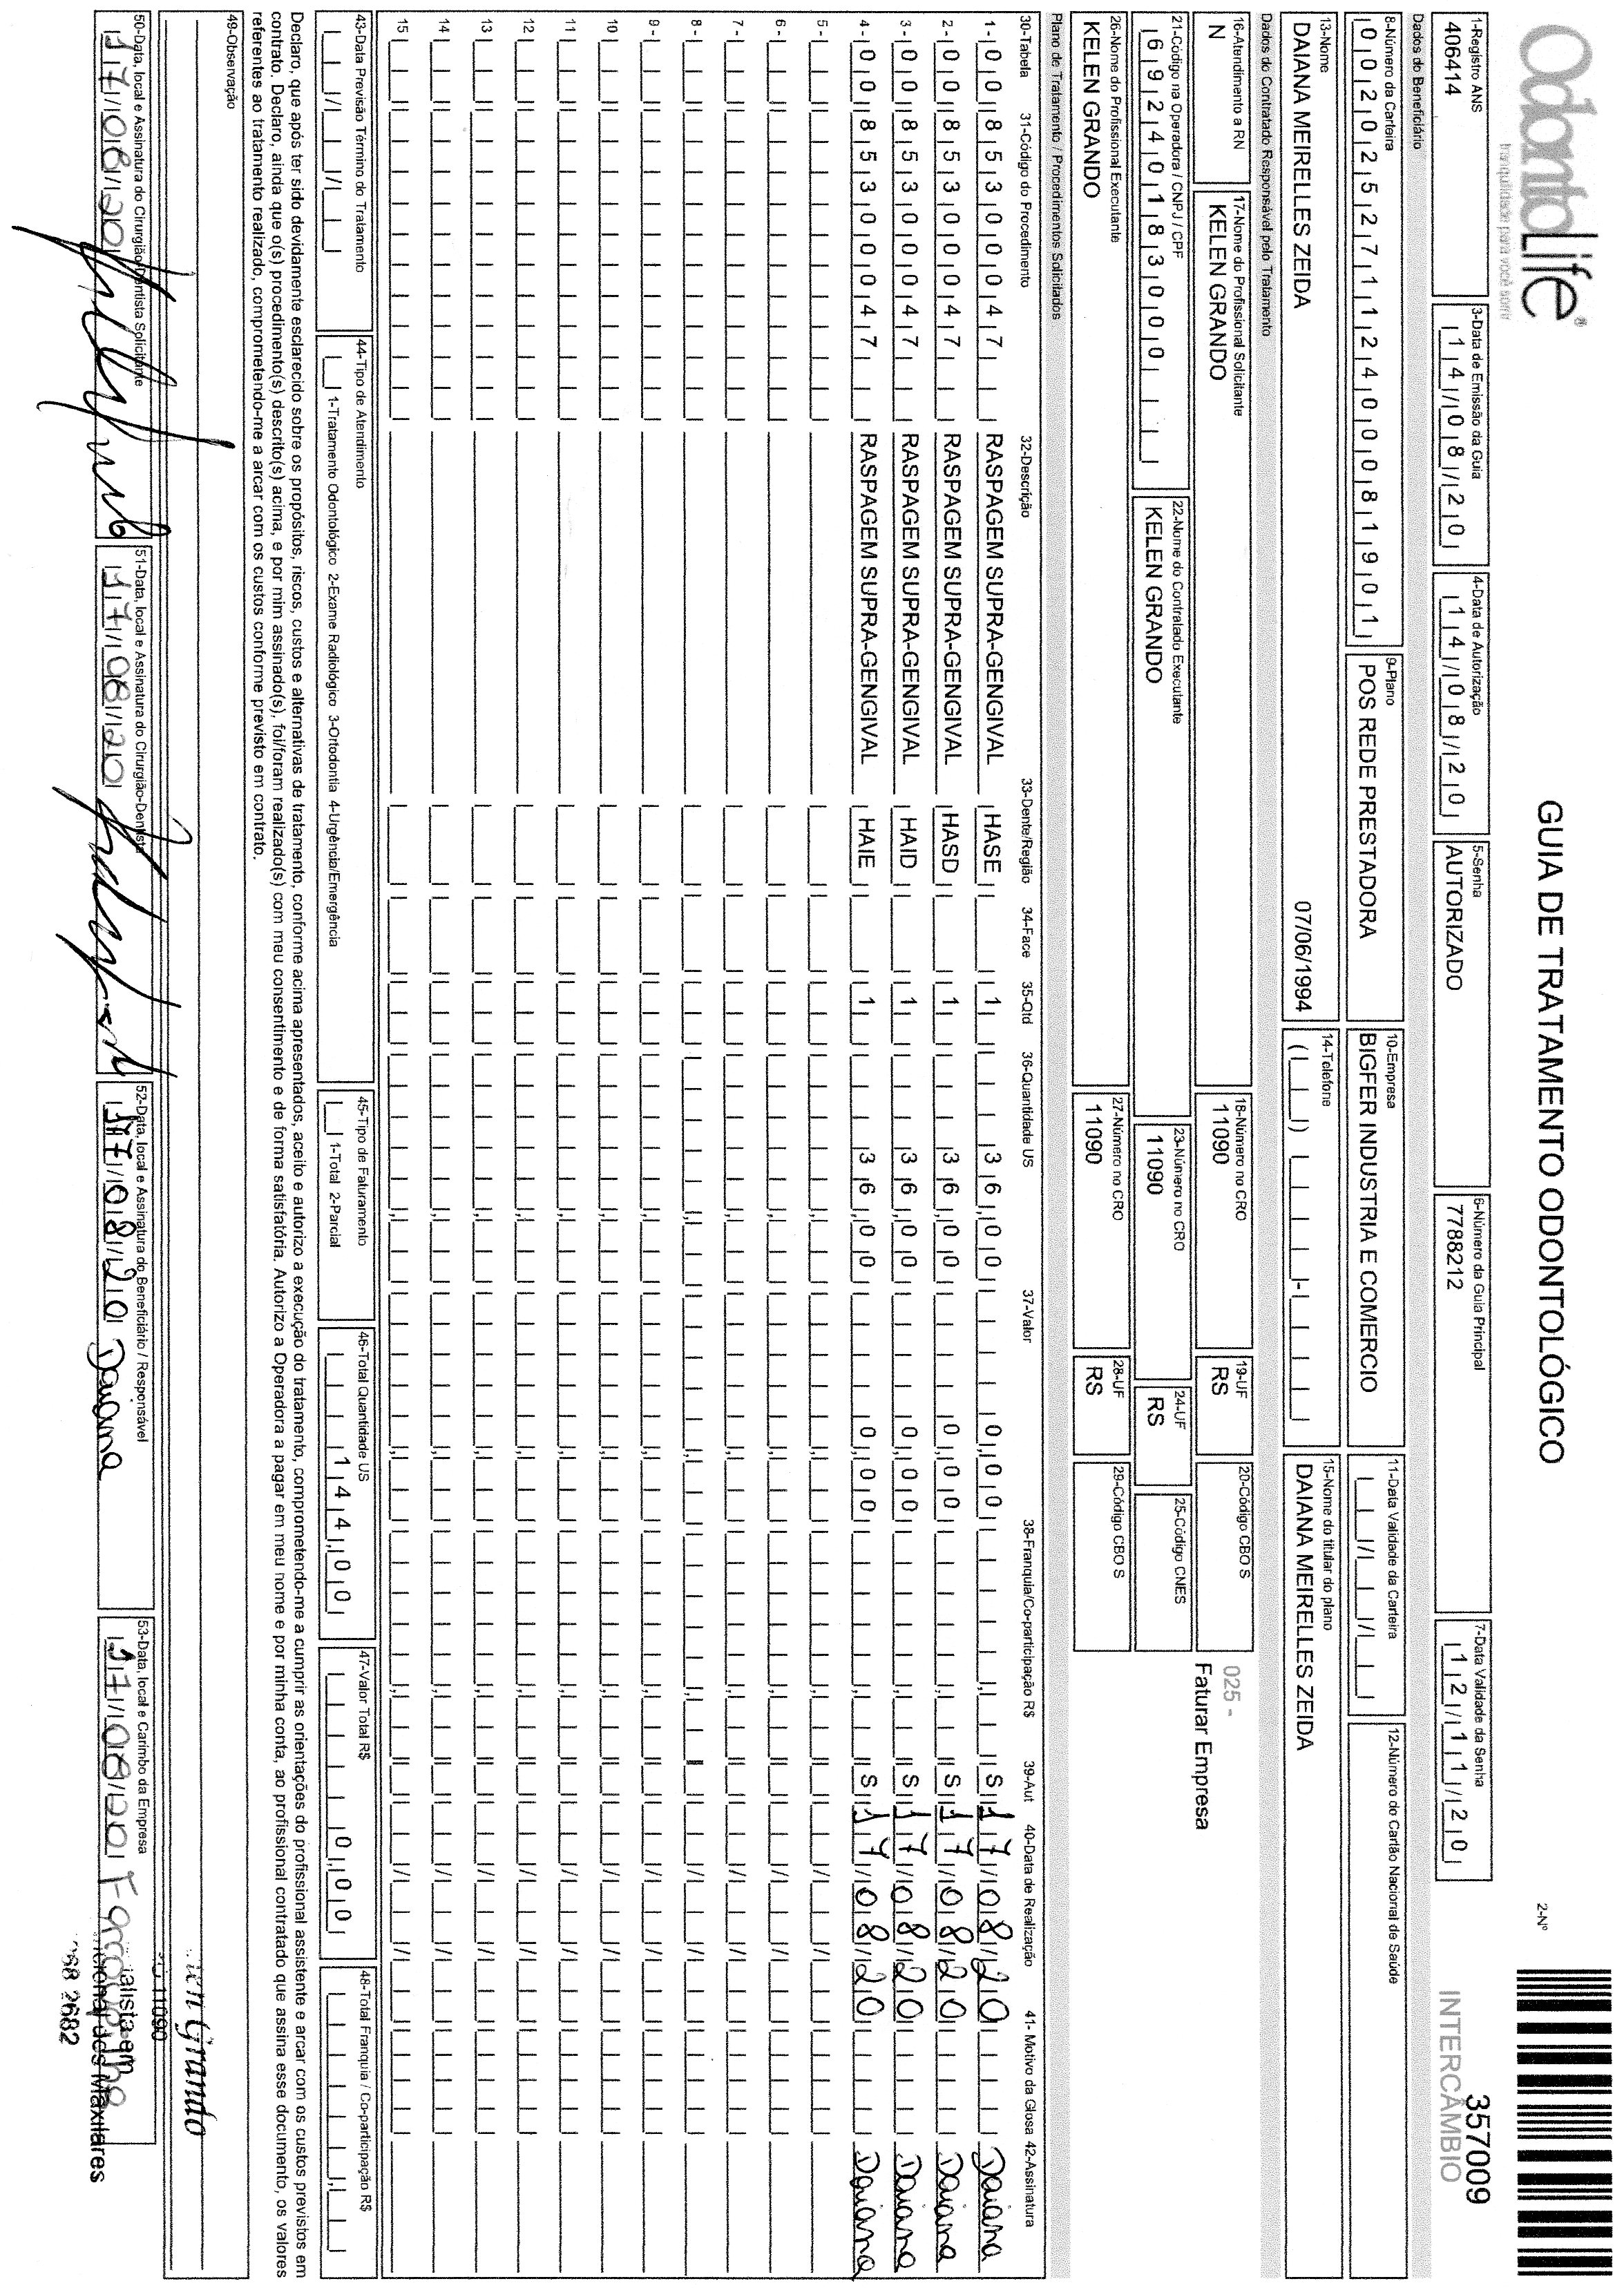 OdontoLife®
tranquilidade para você sorrir
GUIA DE TRATAMENTO ODONTOLÓGICO
2-Nº
357009
INTERCÂMBIO
1-Registro ANS
406414
3-Data de Emissão da Guia
14/08/20
4-Data de Autorização
14/08/20
5-Senha
AUTORIZADO
6-Número da Guia Principal
7788212
7-Data Validade da Senha
12/11/20
Dados do Beneficiário
8-Número da Carteira
00202527112400081901
9-Plano
POS REDE PRESTADORA
10-Empresa
BIGFER INDUSTRIA E COMERCIO
11-Data Validade da Carteira
12-Número do Cartão Nacional de Saúde
13-Nome
DAIANA MEIRELLES ZEIDA 07/06/1994
14-Telefone
15-Nome do titular do plano
DAIANA MEIRELLES ZEIDA
Dados do Contratado Responsável pelo Tratamento
16-Atendimento a RN
N
17-Nome do Profissional Solicitante
KELEN GRANDO
18-Número no CRO
11090
19-UF
RS
20-Código CBO S
025 -
Faturar Empresa
21-Código na Operadora / CNPJ / CPF
69240183000
22-Nome do Contratado Executante
KELEN GRANDO
23-Número no CRO
11090
24-UF
RS
25-Código CNES
26-Nome do Profissional Executante
KELEN GRANDO
27-Número no CRO
11090
28-UF
RS
29-Código CBO S
Plano de Tratamento / Procedimentos Solicitados
30-Tabela 31-Código do Procedimento 32-Descrição 33-Dente/Região 34-Face 35-Qtd 36-Quantidade US 37-Valor 38-Franquia/Co-participação R$ 39-Aut 40-Data de Realização 41- Motivo da Glosa 42-Assinatura
1- 00 85300047 RASPAGEM SUPRA-GENGIVAL HASE 1 36,00 0,00 S 17/08/20 Daiana
2- 00 85300047 RASPAGEM SUPRA-GENGIVAL HASD 1 36,00 0,00 S 17/08/20 Daiana
3- 00 85300047 RASPAGEM SUPRA-GENGIVAL HAID 1 36,00 0,00 S 17/08/20 Daiana
4- 00 85300047 RASPAGEM SUPRA-GENGIVAL HAIE 1 36,00 0,00 S 17/08/20 Daiana
5-
6-
7-
8-
9-
10
11
12
13
14
15
43-Data Previsão Término do Tratamento
44-Tipo de Atendimento
1-Tratamento Odontológico 2-Exame Radiológico 3-Ortodontia 4-Urgência/Emergência
45-Tipo de Faturamento
1-Total 2-Parcial
46-Total Quantidade US
144,00
47-Valor Total R$
0,00
48-Total Franquia / Co-participação R$
Declaro, que após ter sido devidamente esclarecido sobre os propósitos, riscos, custos e alternativas de tratamento, conforme acima apresentados, aceito e autorizo a execução do tratamento, comprometendo-me a cumprir as orientações do profissional assistente e arcar com os custos previstos em
contrato. Declaro, ainda que o(s) procedimento(s) descrito(s) acima, e por mim assinado(s), foi/foram realizado(s) com meu consentimento e de forma satisfatória. Autorizo a Operadora a pagar em meu nome e por minha conta, ao profissional contratado que assina esse documento, os valores
referentes ao tratamento realizado, comprometendo-me a arcar com os custos conforme previsto em contrato.
49-Observação
Grando
11090
50-Data, local e Assinatura do Cirurgião-Dentista Solicitante
17/08/20
51-Data, local e Assinatura do Cirurgião-Dentista
17/08/20
52-Data, local e Assinatura do Beneficiário / Responsável
17/08/20 Daiana
53-Data, local e Carimbo da Empresa
17/08/20
dos Maxilares
68 2682